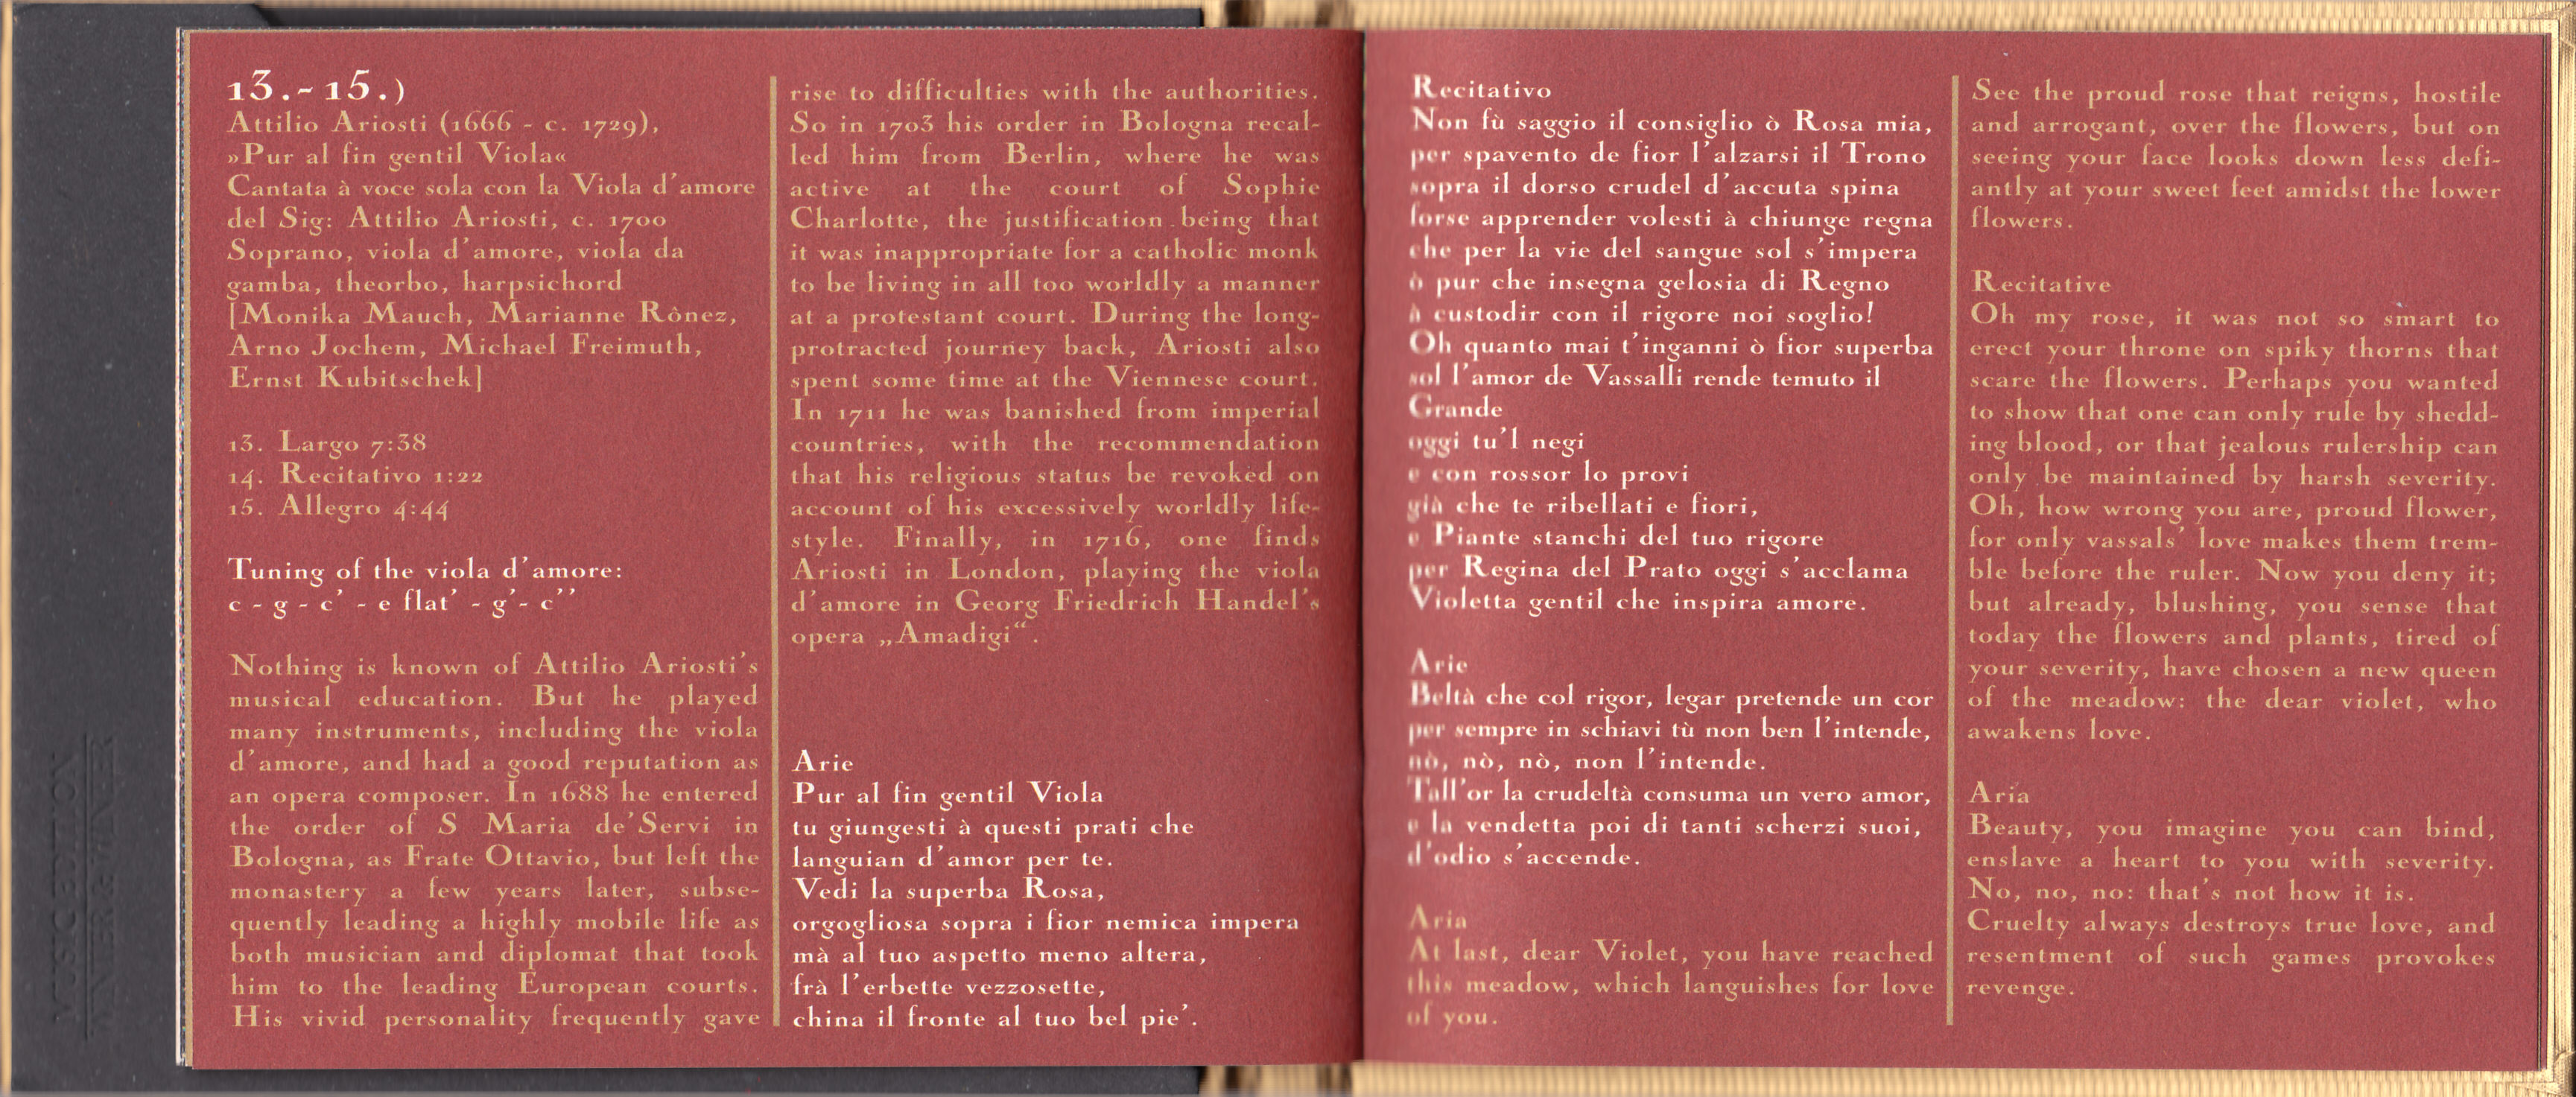 13.-15.)
Attilio Ariosti (1666 - c. 1729),
»Pur al fin gentil Viola«
Cantata à voce sola con la Viola d'amore
del Sig: Attilio Ariosti, c. 1700
Soprano, viola d'amore, viola da
gamba, theorbo, harpsichord
[Monika Mauch, Marianne Rònez,
Arno Jochem, Michael Freimuth,
Ernst Kubitschek]
13. Largo 7:38
14. Recitativo 1:22
15. Allegro 4:44
Tuning of the viola d'amore:
c - g - c' - e flat' - g'- c''
Nothing is known of Attilio Ariosti's
musical education. But he played
many instruments, including the viola
d'amore, and had a good reputation as
an opera composer. In 1688 he entered
the order of S Maria de'Servi in
Bologna, as Frate Ottavio, but left the
monastery a few years later, subse-
quently leading a highly mobile life as
both musician and diplomat that took
him to the leading European courts.
His vivid personality frequently gave
rise to difficulties with the authorities.
So in 1703 his order in Bologna recal-
led him from Berlin, where he was
active at the court of Sophie
Charlotte, the justification being that
it was inappropriate for a catholic monk
to be living in all too worldly a manner
at a protestant court. During the long-
protracted journey back, Ariosti also
spent some time at the Viennese court.
In 1711 he was banished from imperial
countries, with the recommendation
that his religious status be revoked on
account of his excessively worldly life-
style. Finally, in 1716, one finds
Ariosti in London, playing the viola
d'amore in Georg Friedrich Handel's
opera „Amadigi“.
Arie
Pur al fin gentil Viola
tu giungesti à questi prati che
languian d'amor per te.
Vedi la superba Rosa,
orgogliosa sopra i fior nemica impera
mà al tuo aspetto meno altera,
frà l'erbette vezzosette,
china il fronte al tuo bel pie'.
Recitativo
Non fù saggio il consiglio ò Rosa mia,
per spavento de fior l'alzarsi il Trono
sopra il dorso crudel d'accuta spina
forse apprender volesti à chiunge regna
che per la vie del sangue sol s'impera
ò pur che insegna gelosia di Regno
à custodir con il rigore noi soglio!
Oh quanto mai t'inganni ò fior superba
sol l'amor de Vassalli rende temuto il
Grande
oggi tu'l negi
e con rossor lo provi
già che te ribellati e fiori,
e Piante stanchi del tuo rigore
per Regina del Prato oggi s'acclama
Violetta gentil che inspira amore.
Arie
Beltà che col rigor, legar pretende un cor
per sempre in schiavi tù non ben l'intende,
nò, nò, nò, non l'intende.
Tall'or la crudeltà consuma un vero amor,
e la vendetta poi di tanti scherzi suoi,
d'odio s'accende.
Aria
At last, dear Violet, you have reached
this meadow, which languishes for love
of you.
See the proud rose that reigns, hostile
and arrogant, over the flowers, but on
seeing your face looks down less defi-
antly at your sweet feet amidst the lower
flowers.
Recitative
Oh my rose, it was not so smart to
erect your throne on spiky thorns that
scare the flowers. Perhaps you wanted
to show that one can only rule by shedd-
ing blood, or that jealous rulership can
only be maintained by harsh severity.
Oh, how wrong you are, proud flower,
for only vassals' love makes them trem-
ble before the ruler. Now you deny it;
but already, blushing, you sense that
today the flowers and plants, tired of
your severity, have chosen a new queen
of the meadow: the dear violet, who
awakens love.
Aria
Beauty, you imagine you can bind,
enslave a heart to you with severity.
No, no, no: that's not how it is.
Cruelty always destroys true love, and
resentment of such games provokes
revenge.
MUSIC EDITION